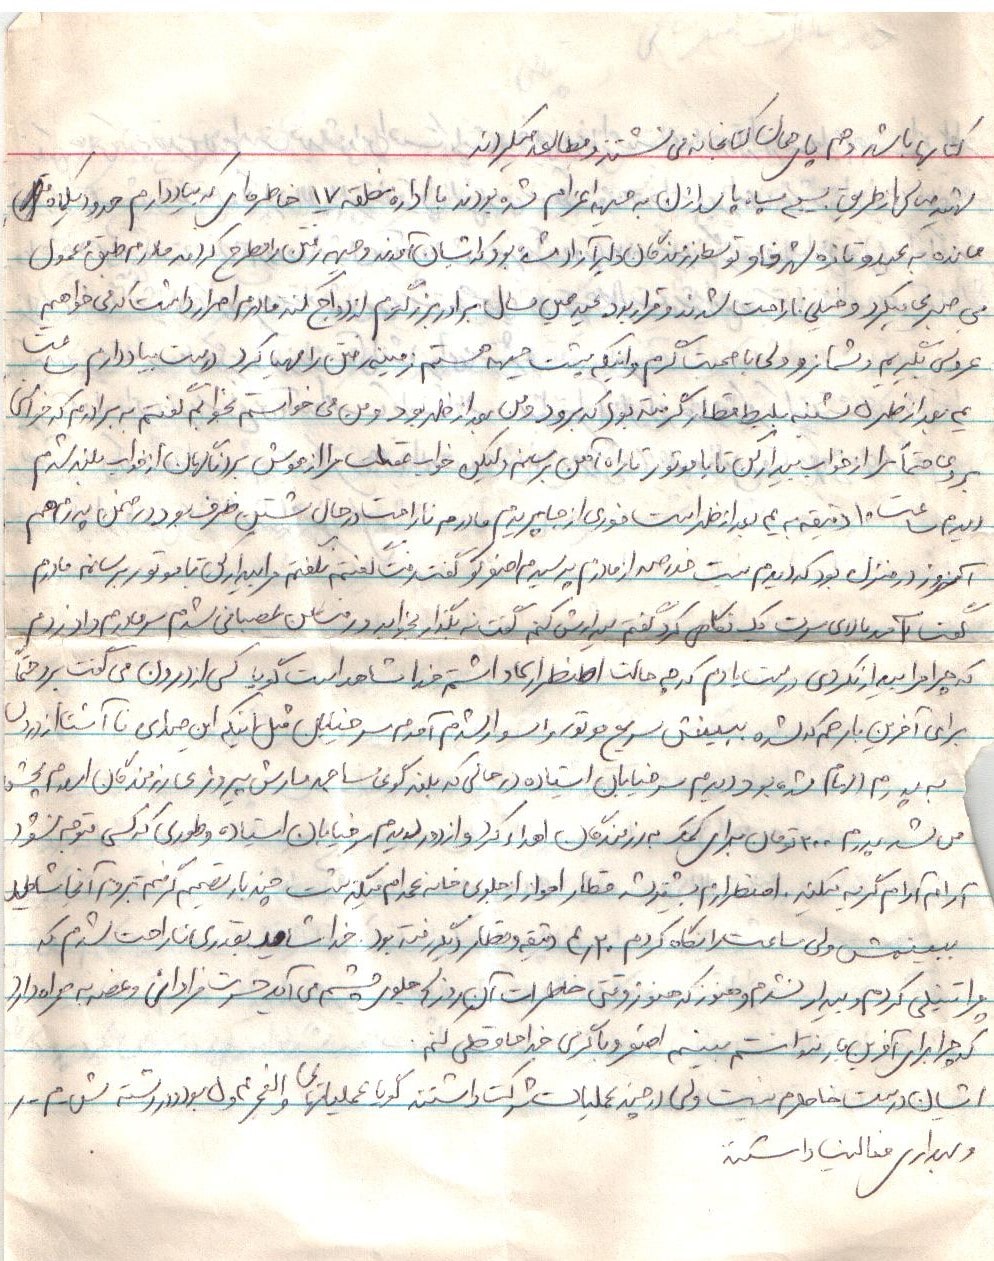 کتابها باشد و هم پای همان کتابخانه می نشستند و مطالعه میکردند
شهید صالحی از طریق بسیج سپاه پاسداران به جبهه اعزام شده بودند با اداره منطقه ۱۷ خاطره ای که بیاد دارم حدود یکماه
مانده به عید و تازه توسط رزمندگان دلیر آزاد شده بود که ایشان آمدند و جبهه رفتن را مطرح کردند مادرم طبق معمول
بی صبری میکرد و خیلی ناراحت شدند و قرار بود عید همین سال برادر بزرگترم ازدواج کند مادرم اصرار داشت که می خواهیم
عروسی بگیریم و شما نرو ولی با صحبت گرم و اینکه پشت جبهه هستم زمینه رفتن را مهیا کرد درست بیاد دارم ساعت
یک بعد از ظهر ۵ شنبه بلیط قطار گرفته بود که برود و من بعد از ظهر بود و من می خواستم بخوابم گفتم به برادرم که خواستی
بروی حتماً مرا از خواب بیدار کن تا با موتور تا راه آهن برسانم ولیکن خواب غفلت مرا از هوش برد ناگهان از خواب بلند شدم
دیدم ساعت ۱۰ دقیقه به یک بعد از ظهر است فوری از جا پریدم مادرم ناراحت در حال شستن ظرف بود در ضمن پدرم هم
آنروز در منزل بود که دیدم نیست از مادرم پرسیدم اصغر کو گفت رفت گفتم نگفتم مرا بیدار کن تا با موتور برسانم مادرم
گفت آمد بالای سرت یک نگاهی کرد گفتم بیدارش کنم گفت نه بگذار بخوابد و من عصبانی شدم سر مادرم داد زدم
که چرا مرا بیدار نکردی درست یادم که چه حالت اضطراری داشتم خدا شاهد است گویا کسی از درون می گفت برو حتماً
برای آخرین بار هم که شده ببینش سریع موتور را سوار شدم آمدم سر خیابان قبل اینکه این صدای نا آشنا از درون
به پدرم الهام شده بود دیدم سر خیابان ایستاده در حالی که بلندگوی مارش پیروزی رزمندگان اسلام پخش
می شد پدرم ۲۰۰ تومان برای کمک به رزمندگان اهداء کرد و از دور دیدم سر خیابان ایستاده و طوری که کسی متوجه نشود
آرام آرام گریه میکند. اضطرارم بیشتر شد قطار اهواز از جلوی خانه میگذشت چند بار تصمیم گرفتم بروم آنجا شاید
ببینمش ولی ساعت را نگاه کردم دقیقه و قطار دیگر رفته بود. خدا شاهد بقدری ناراحت شدم که
چرا تنبلی کردم و بیدار نشدم و هنوز که هنوز وقتی خاطرات آن روز جلوی چشمم می آید حسرت فراوانی و غصه به همراه دارد
که چرا برای آخرین بار نتوانستم ببینم اصغر و با گرمی خداحافظی کنم.
ایشان درست خاطرم نیست ولی در چند عملیات شرکت داشتند گویا عملیاتهای والفجر بود و در رشته ش-م-ر
و بهداری فعالیت داشتند